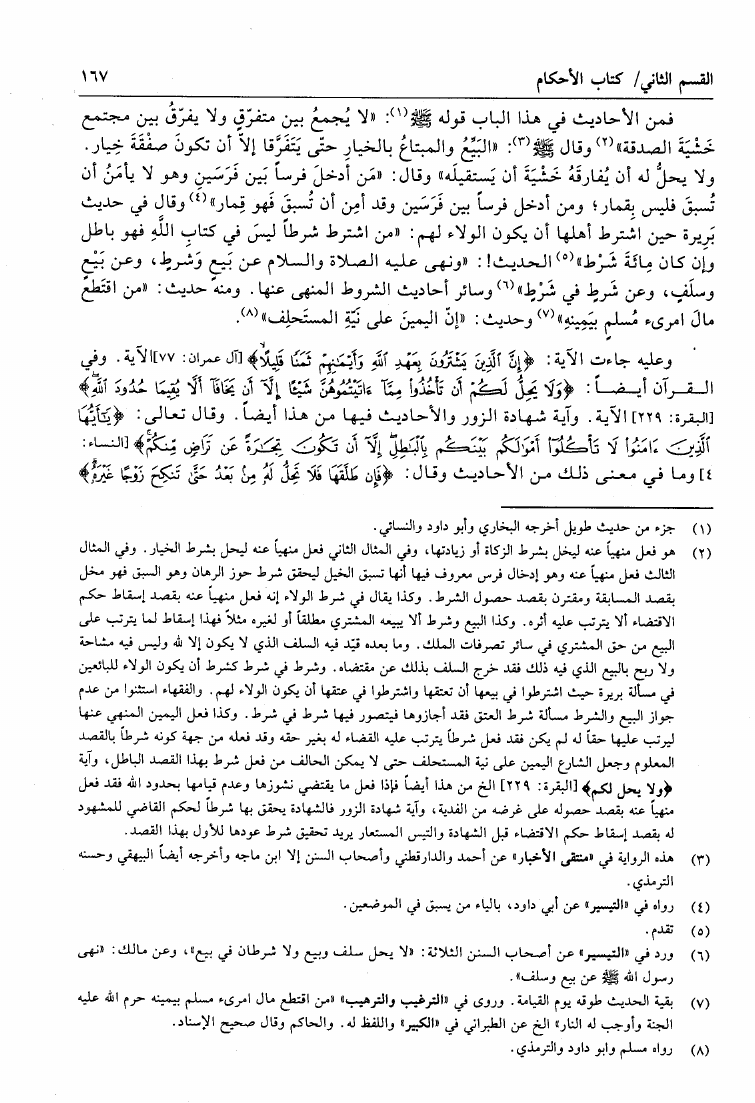 القسم الثاني/ كتاب الأحكام ١٦٧
فمن الأحاديث في هذا الباب قوله ﷺ(١): «لا يُجمعُ بين متفرّقٍ ولا يفرّقُ بين مجتمع
خَشْيَةَ الصدقة»(٢) وقال ﷺ(٣): «البَيِّعُ والمبتاعُ بالخيارِ حتّى يَتَفَرَّقا إلاّ أن تكونَ صفْقَةَ خِيار.
ولا يحلُّ له أن يُفارقَهُ خَشْيَةَ أن يَستقيلَه» وقال: «مَن أدخلَ فرساً بَين فَرَسَينِ وهو لا يأمَنُ أن
تُسبقَ فليس بِقمار؛ ومن أدخل فرساً بين فَرَسَين وقد أمِن أن تُسبقَ فَهو قِمار»(٤) وقال في حديث
بَريرة حين اشترط أهلها أن يكون الولاء لهم: «من اشترط شرطاً ليسَ في كتابِ اللَّهِ فهو باطل
وإن كان مِائَةَ شَرْط»(٥) الحديث!: «ونهى عليه الصلاة والسلام عن بَيعٍ وَشرطٍ، وعن بَيْعٍ
وسلَفٍ، وعن شَرطٍ في شَرْطٍ»(٦) وسائر أحاديث الشروط المنهى عنها. ومنه حديث: «من اقتَطَعَ
مالَ امرىء مُسلمٍ بيَمينِهِ»(٧) وحديث: «إنّ اليمينَ على نيّة المستَحلِف»(٨).
وعليه جاءت الآية: ﴿إِنَّ الَّذِينَ يَشْتَرُونَ بِعَهْدِ اللَّهِ وَأَيْمَانِهِمْ ثَمَنًا قَلِيلًا﴾ [آل عمران: ٧٧] الآية. وفي
القرآن أيضاً: ﴿وَلَا يَحِلُّ لَكُمْ أَن تَأْخُذُوا مِمَّا ءَاتَيْتُمُوهُنَّ شَيْئًا إِلَّا أَن يَخَافَا أَلَّا يُقِيمَا حُدُودَ اللَّهِ﴾
[البقرة: ٢٢٩] الآية. وآية شهادة الزور والأحاديث فيها من هذا أيضاً. وقال تعالى: ﴿يَا أَيُّهَا
الَّذِينَ ءَامَنُوا لَا تَأْكُلُوا أَمْوَالَكُم بَيْنَكُم بِالْبَاطِلِ إِلَّا أَن تَكُونَ تِجَارَةً عَن تَرَاضٍ مِّنكُمْ﴾ [النساء:
٤] وما في معنى ذلك من الأحاديث وقال: ﴿فَإِن طَلَّقَهَا فَلَا تَحِلُّ لَهُ مِن بَعْدُ حَتَّى تَنكِحَ زَوْجًا غَيْرَهُ﴾
(١) جزء من حديث طويل أخرجه البخاري وأبو داود والنسائي.
(٢) هو فعل منهياً عنه ليخل بشرط الزكاة أو زيادتها، وفي المثال الثاني فعل منهياً عنه ليحل بشرط الخيار. وفي المثال
الثالث فعل منهياً عنه وهو إدخال فرس معروف فيها أنها تسبق الخيل ليحقق شرط حوز الرهان وهو السبق فهو مخل
بقصد المسابقة ومقترن بقصد حصول الشرط. وكذا يقال في شرط الولاء إنه فعل منهياً عنه بقصد إسقاط حكم
الاقتضاء ألا يترتب عليه أثره. وكذا البيع وشرط ألا يبيعه المشتري مطلقاً أو لغيره مثلاً فهذا إسقاط لما يترتب على
البيع من حق المشتري في سائر تصرفات الملك. وما بعده قيّد فيه السلف الذي لا يكون إلا لله وليس فيه مشاحة
ولا ربح بالبيع الذي فيه ذلك فقد خرج السلف بذلك عن مقتضاه. وشرط في شرط كشرط أن يكون الولاء للبائعين
في مسألة بريرة حيث اشترطوا في بيعها أن تعتقها واشترطوا في عتقها أن يكون الولاء لهم. والفقهاء استثنوا من عدم
جواز البيع والشرط مسألة شرط العتق فقد أجازوها فيتصور فيها شرط في شرط. وكذا فعل اليمين المنهي عنها
ليرتب عليها حقاً له لم يكن فقد فعل شرطاً يترتب عليه القضاء له بغير حقه وقد فعله من جهة كونه شرطاً بالقصد
المعلوم وجعل الشارع اليمين على نية المستحلف حتى لا يمكن الحالف من فعل شرط بهذا القصد الباطل، وآية
﴿ولا يحل لكم﴾ [البقرة: ٢٢٩] الخ من هذا أيضاً فإذا فعل ما يقتضي نشوزها وعدم قيامها بحدود الله فقد فعل
منهياً عنه بقصد حصوله على غرضه من الفدية، وآية شهادة الزور فالشهادة يحقق بها شرطاً لحكم القاضي للمشهود
له بقصد إسقاط حكم الاقتضاء قبل الشهادة والتيس المستعار يريد تحقيق شرط عودها للأول بهذا القصد.
(٣) هذه الرواية في «منتقى الأخبار» عن أحمد والدارقطني وأصحاب السنن إلا ابن ماجه وأخرجه أيضاً البيهقي وحسنه
الترمذي.
(٤) رواه في «التيسير» عن أبي داود، بالياء من يسبق في الموضعين.
(٥) تقدم.
(٦) ورد في «التيسير» عن أصحاب السنن الثلاثة: «لا يحل سلف وبيع ولا شرطان في بيع»، وعن مالك: «نهى
رسول الله ﷺ عن بيع وسلف».
(٧) بقية الحديث طوقه يوم القيامة. وروى في «الترغيب والترهيب» «من اقتطع مال امرىء مسلم بيمينه حرم الله عليه
الجنة وأوجب له النار» الخ عن الطبراني في «الكبير» واللفظ له. والحاكم وقال صحيح الإسناد.
(٨) رواه مسلم وابو داود والترمذي.